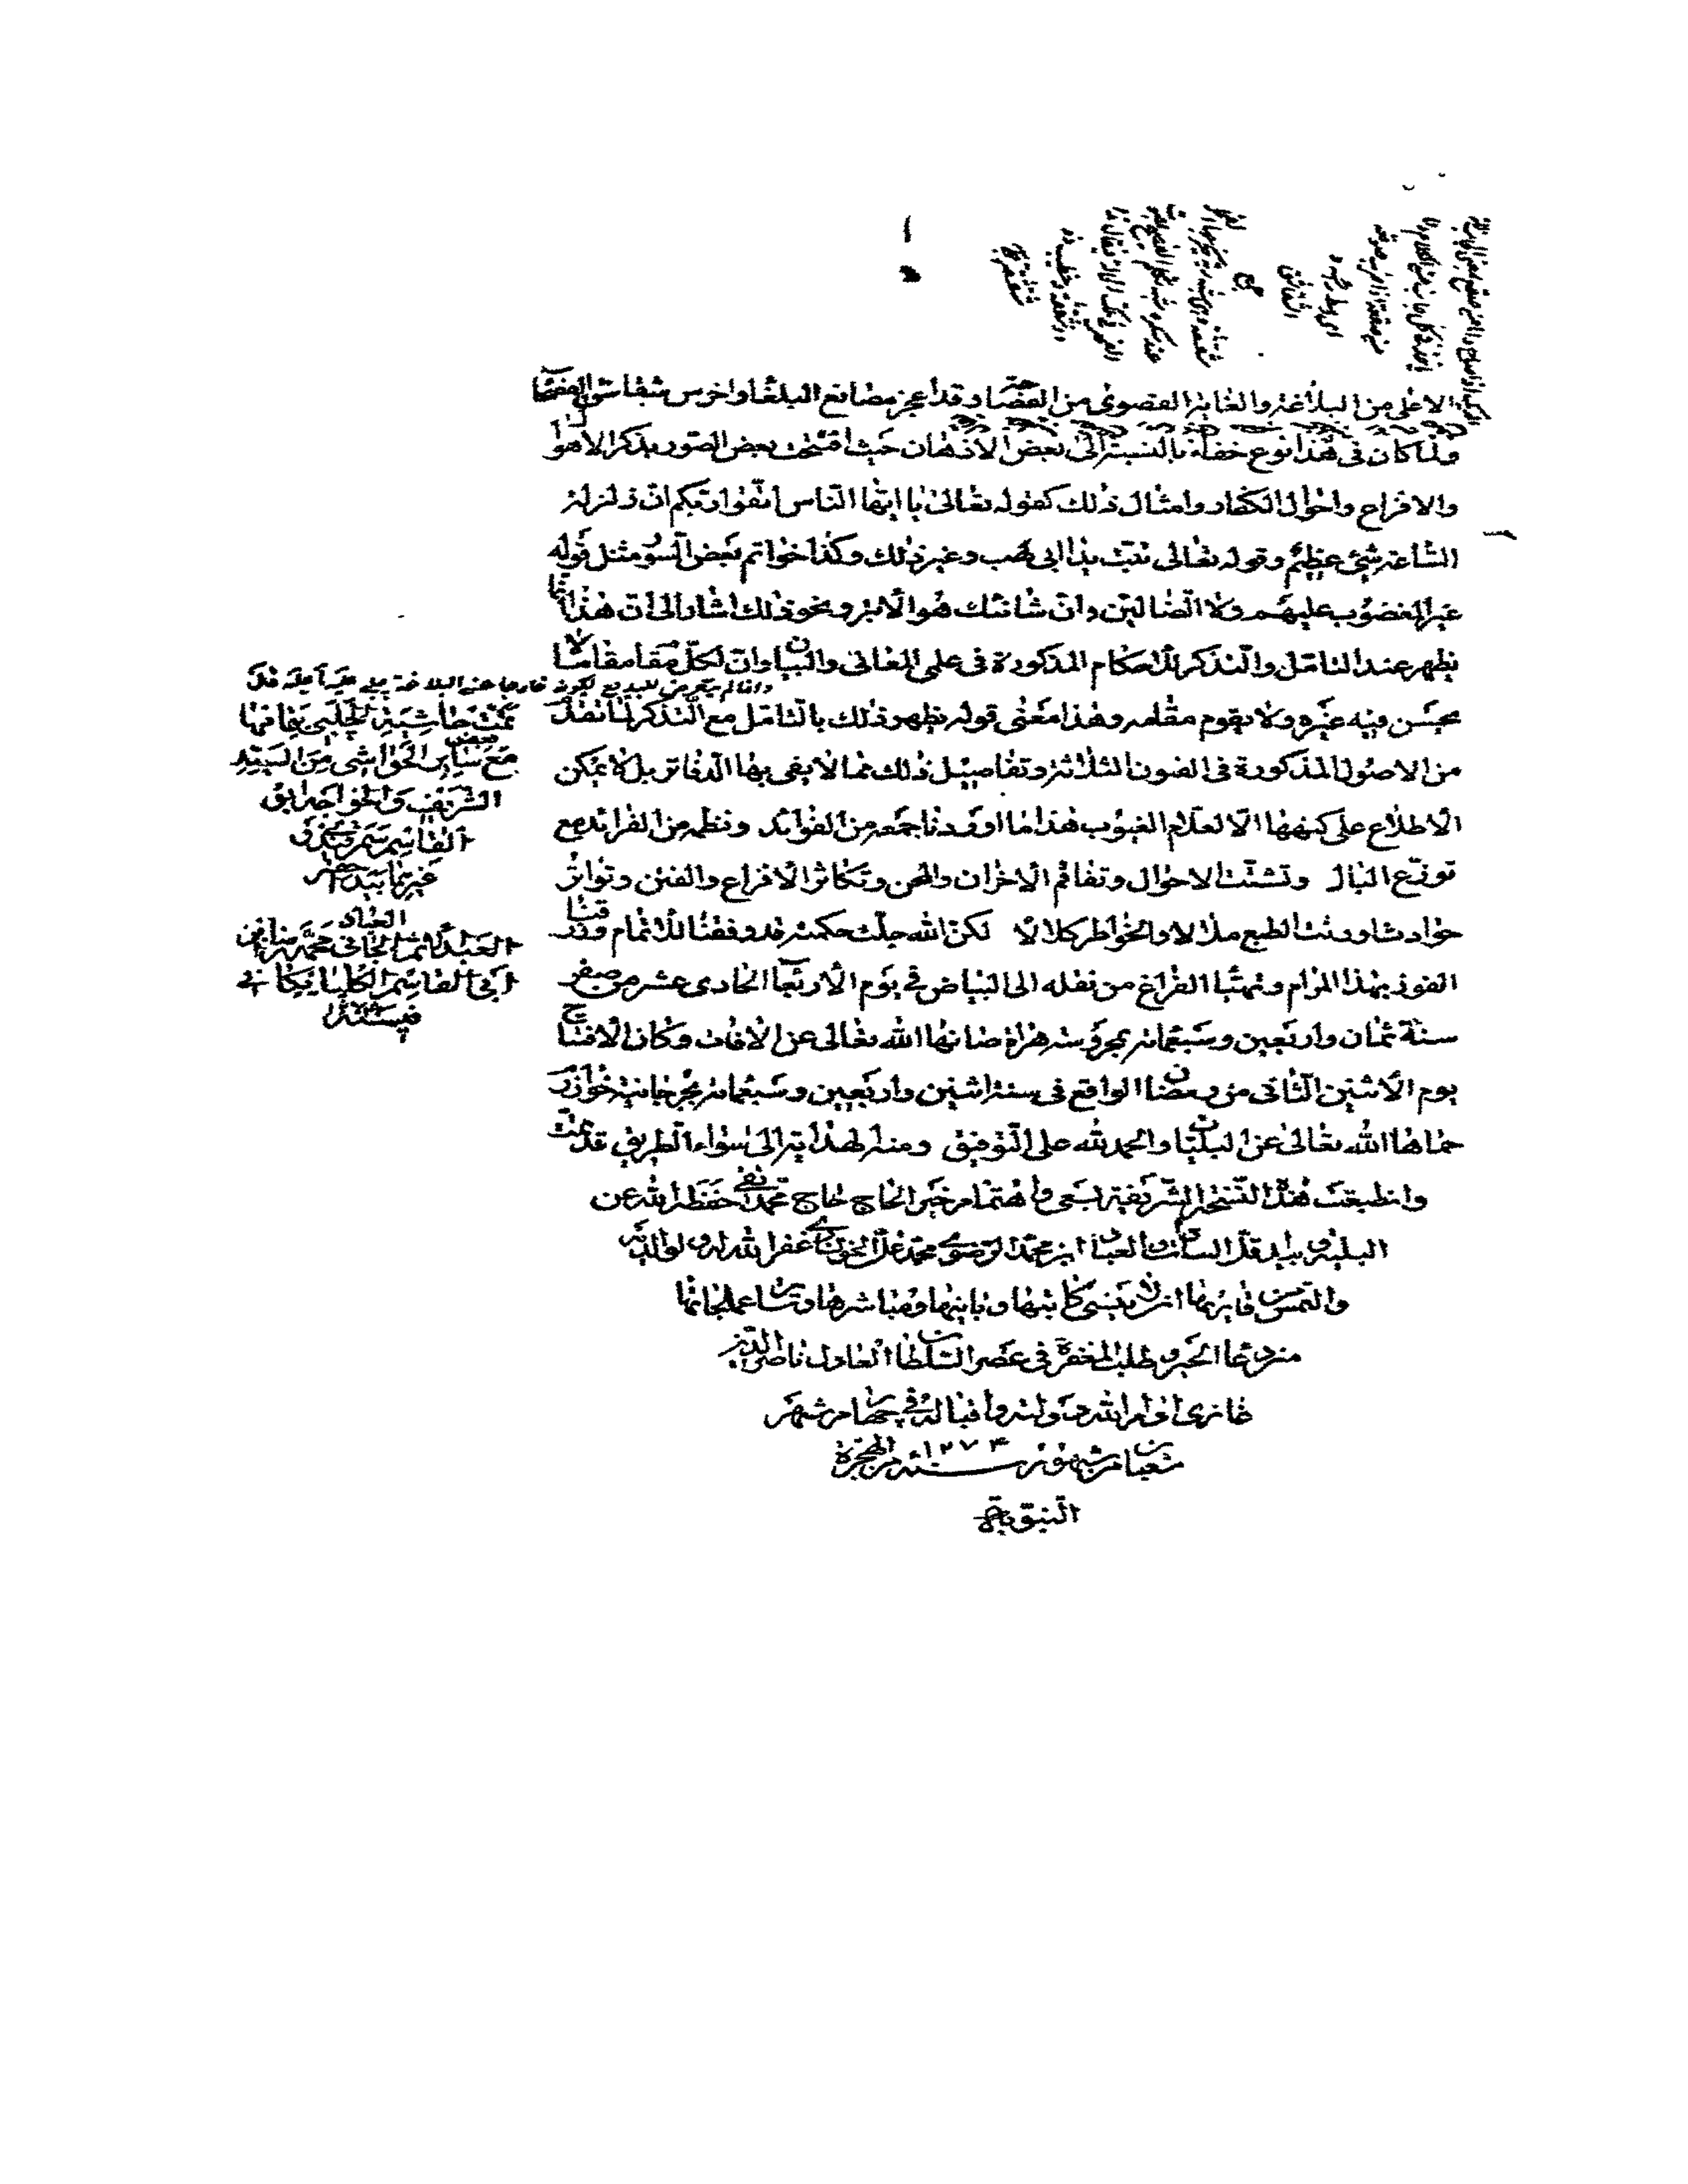 الاعلى من البلاغة والغاية القصوى من الفصاحة وقد اعجز مصاقع البلغاء واخرس شقاشق الفصحاء
ولما كان فى هذا نوع خفاء بالنسبة الى بعض الاذهان حيث افتتحت بعض السور بذكر الاهوال
والافزاع واحوال الكفار وامثال ذلك كقوله تعالى يا ايها الناس اتقوا ربكم ان زلزلة
الساعة شىء عظيم وقوله تعالى تبت يدا ابى لهب وغير ذلك وكذا خواتم بعض السور مثل قوله
غير المغضوب عليهم ولا الضالين وان شانئك هو الابتر ونحو ذلك اشار الى ان هذا انما
يظهر عند التامل والتذكر للاحكام المذكورة فى علمى المعانى والبيان وان لكل مقام مقالا
يحسن فيه غيره ولا يقوم مقامه وهذا معنى قوله يظهر ذلك بالتامل مع التذكر لما تقدم
من الاصول المذكورة فى الفنون الثلاثة وتفاصيل ذلك مما لا يفى بها الدفاتر بل لا يمكن
الاطلاع على كنهها الا لعلام الغيوب هذا ما اوردنا جمعه من الفوائد ونظمه من الفرائد مع
توزع البال وتشتت الاحوال وتفاقم الاحزان والمحن وتكاثر الافزاع والفتن وتواتر
حوادث اورثت الطبع ملالا والخواطر كلالا لكن الله جلت حكمته قد وفقنا للاتمام ورزقنا
الفوز بهذا المرام وتهيأ الفراغ من نقله الى البياض فى يوم الاربعاء الحادى عشر من صفر
سنة ثمان واربعين وسبعمائة بمحروسة هراة صانها الله تعالى عن الافات وكان الافتتاح
يوم الاثنين الثانى من رمضان الواقع فى سنة اثنين واربعين وسبعمائة بجرجانية خوارزم
حماها الله تعالى عن البليات والحمد لله على التوفيق ومنه الهداية الى سواء الطريق قد تمت
وانطبعت هذه النسخة الشريفة بسعى واهتمام خير الحاج حاج محمد تقى حفظه الله عن
البلية بيد اقل السادات والعباد ابن محمد الرضوى محمد على الخونسارى غفر الله له ولوالديه
والتمس من قاريها ان لا ينسى كاتبها وبانيها ومباشرها
من دعاء الخير وطلب المغفرة فى عصر السلطان العادل ناصر الدين
غازى ادام الله دولته واقباله فى چهارم شهر
شعبان من شهور سنة ١٢٧٤ من الهجرة
النبوية
وانما لم يتعرض للبديع لكونه خارجا عن البلاغة
تمت حاشية الچلبى بتمامها
مع بعض سائر الحواشى من السيد
الشريف والخواجه ابى
القاسم سمرقندى
غيرهما بيد احقر
العباد
العبد الاثم الجانى محمد رضا ابن
ابى القاسم الكلپايكانى